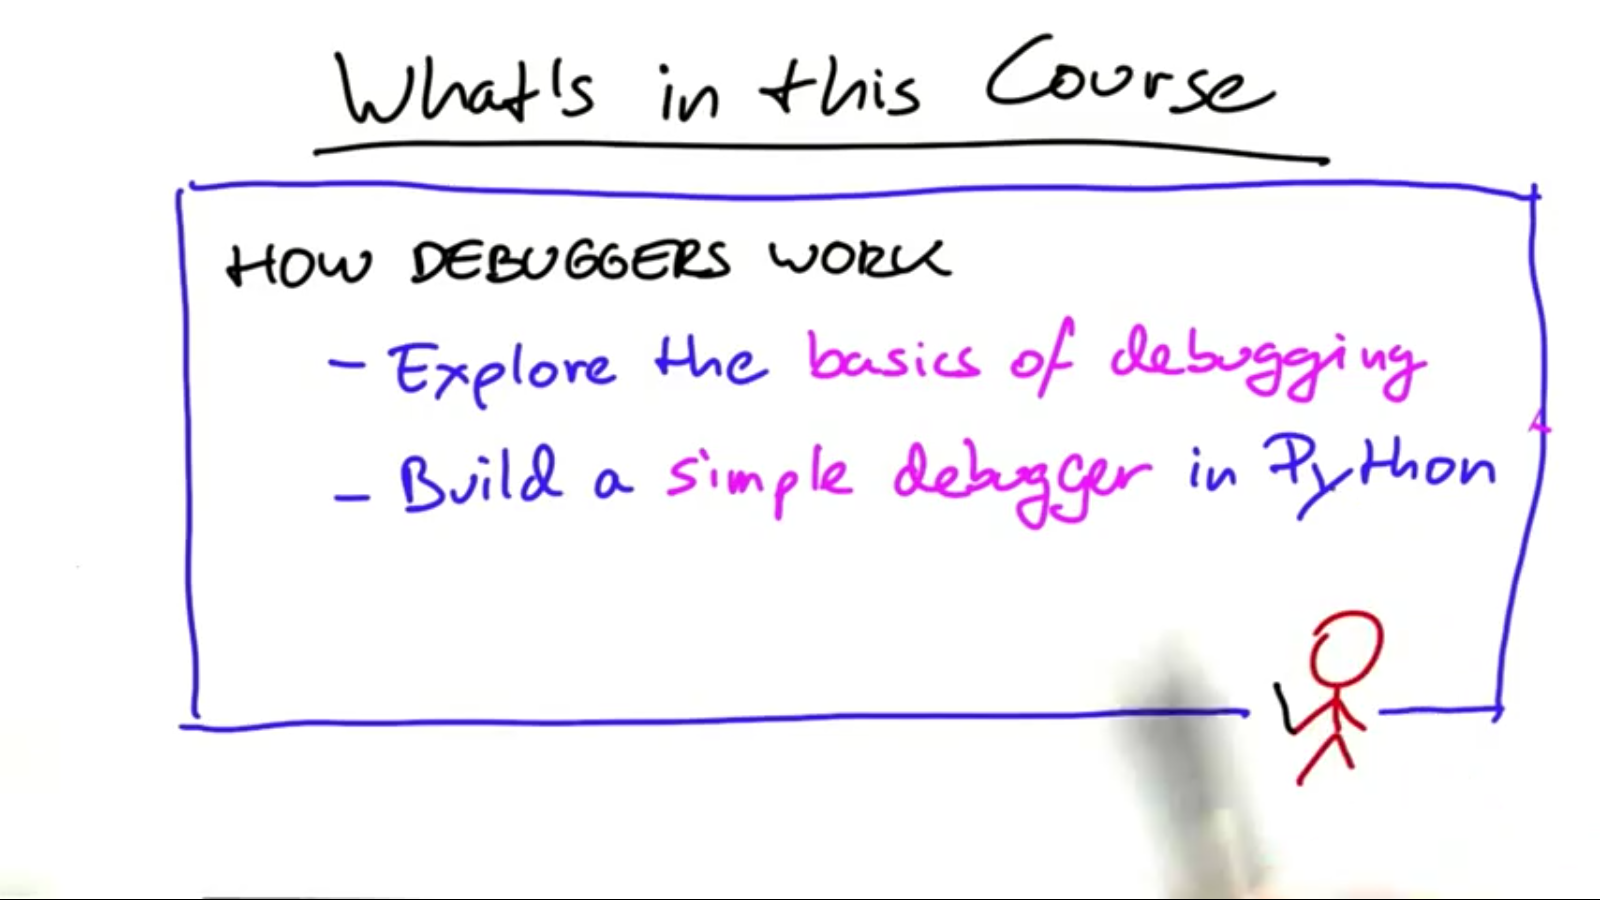 What's in this Course
HOW DEBUGGERS WORK
- Explore the basics of debugging
- Build a simple debugger in Python